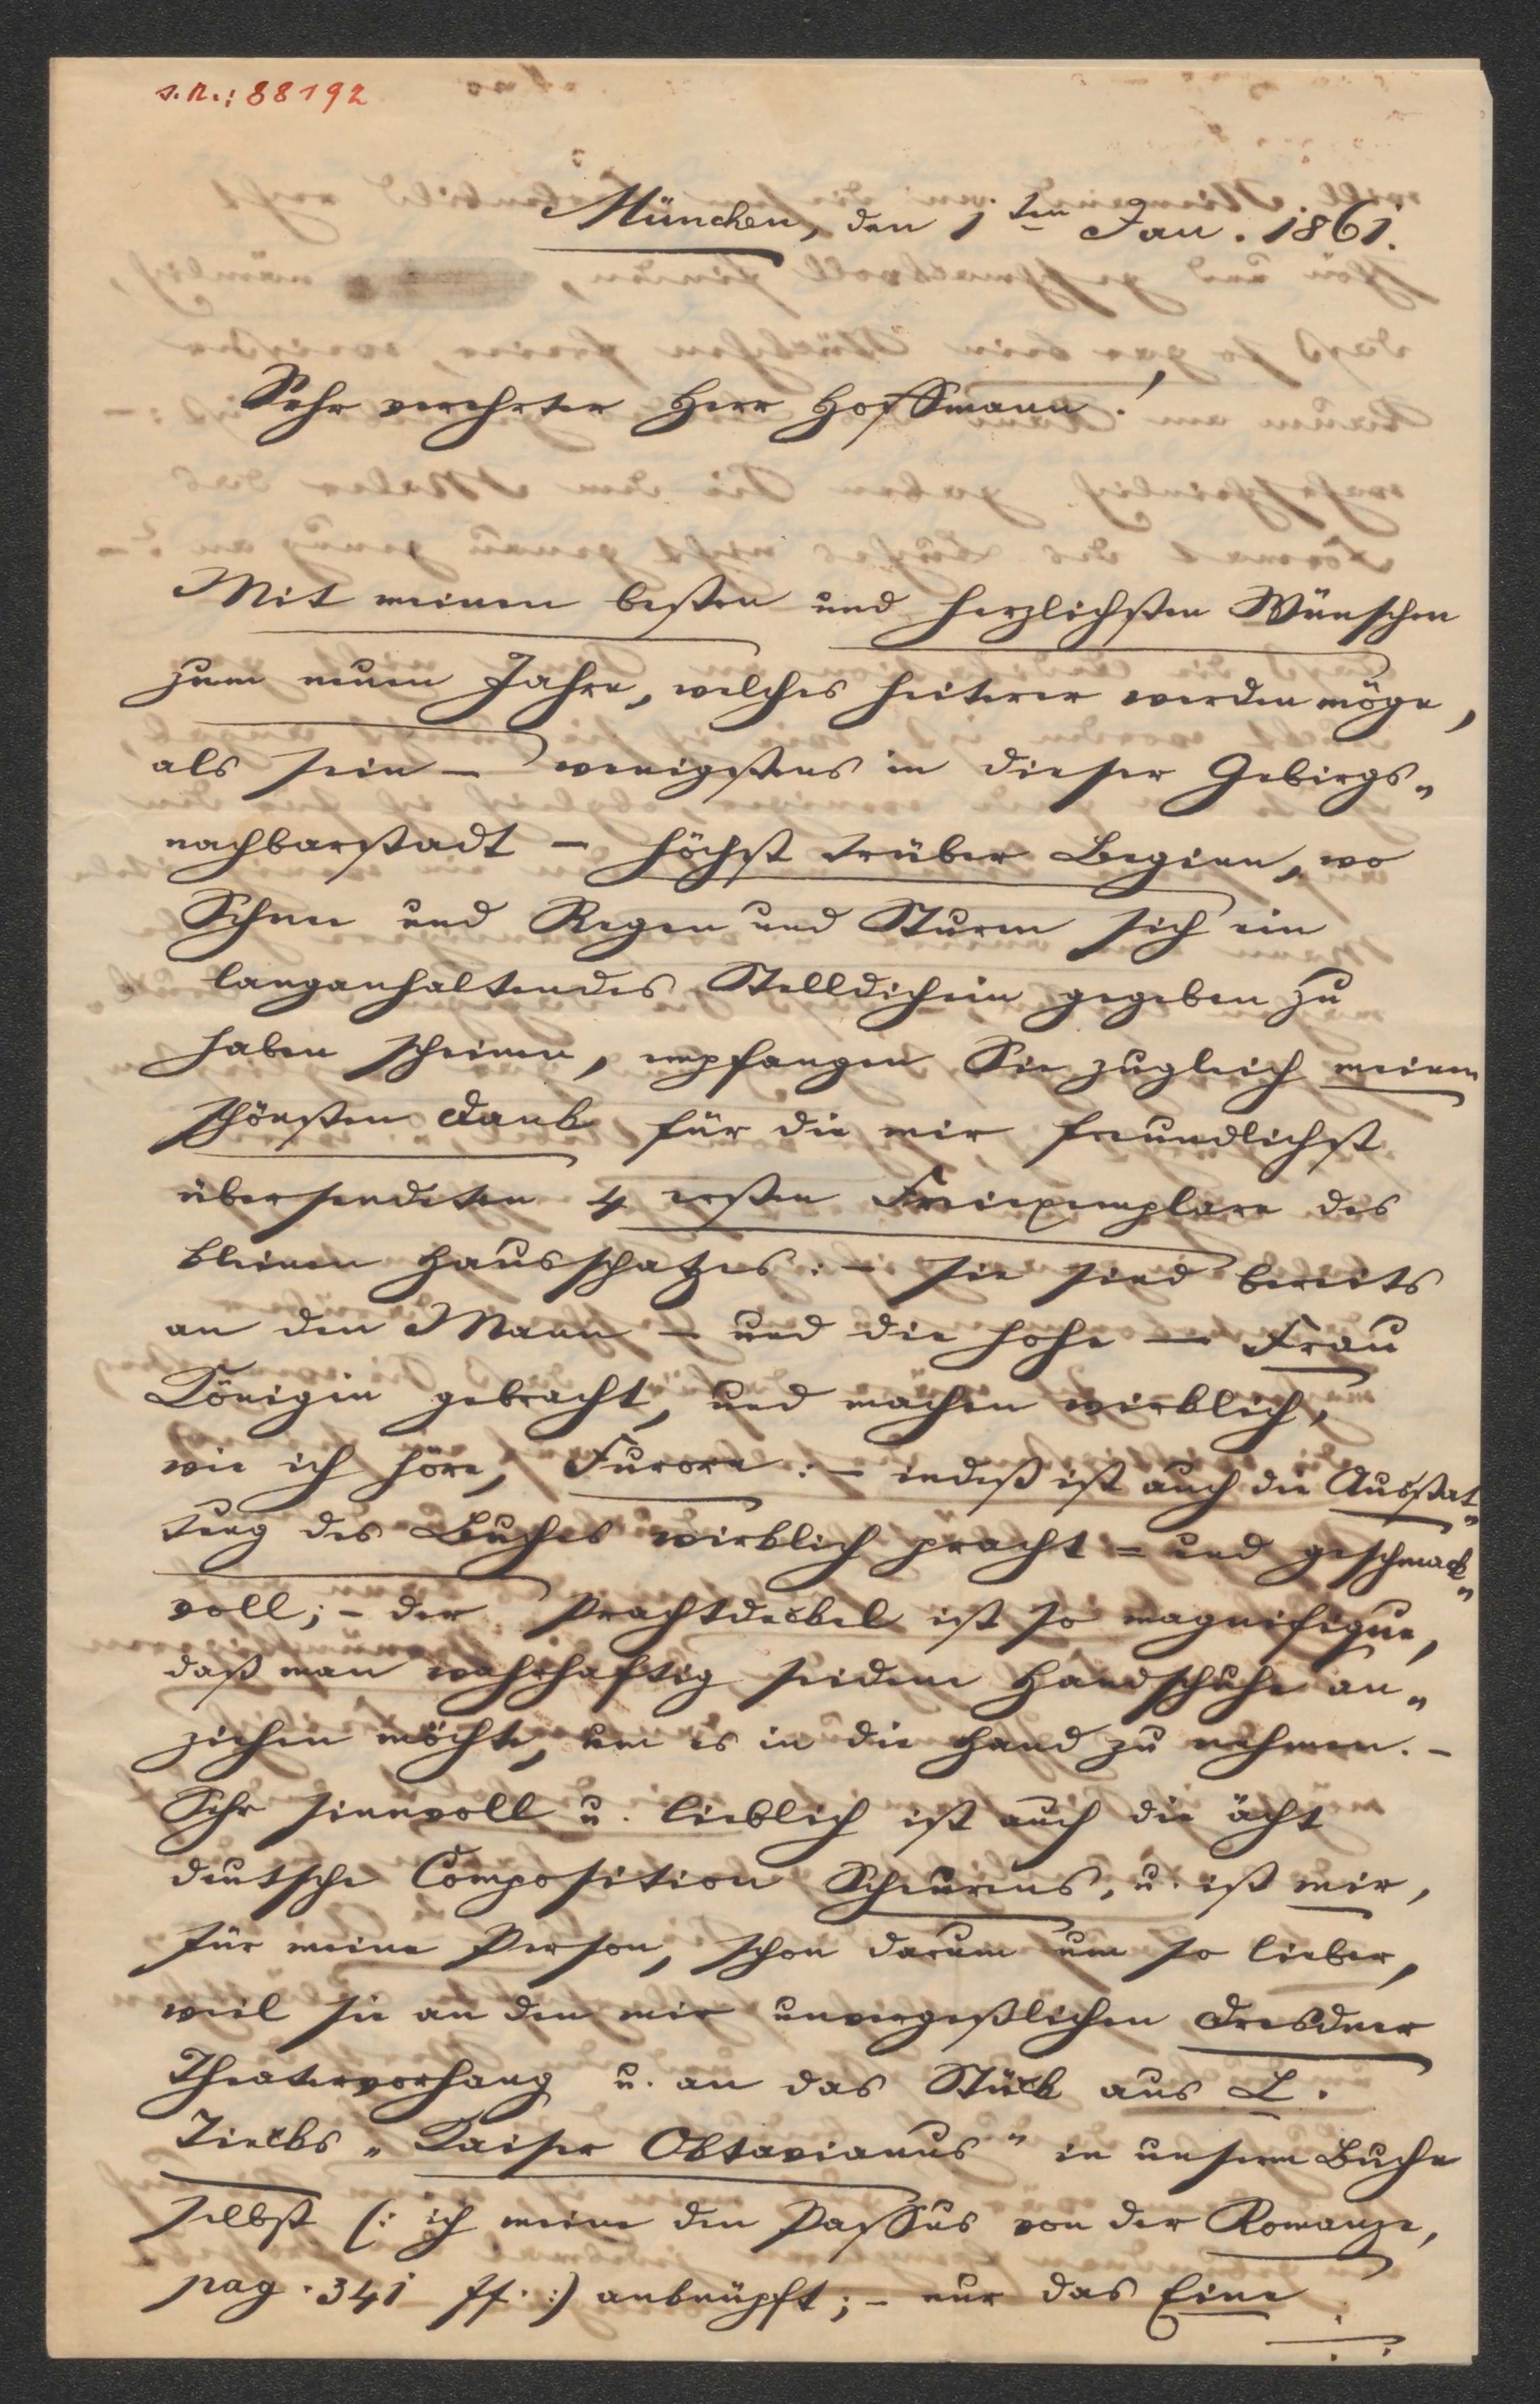 s. n.: 88192
München, den 1ten Jan. 1861.
Sehr verehrter Herr Hoffmann!
Mit meinen besten und herzlichsten Wünschen
zum neuen Jahre, welches heiterer werden möge,
als sein – wenigstens in dieser Gebirgs„
nachbarstadt – höchst trüber Beginn, wo
Schnee und Regen und Sturm sich ein
langanhaltendes Stelldichein gegeben zu
haben scheinen, empfangen Sie zugleich meinen
schönsten Dank für die mir freundlichst
übersendeten 4 ersten Freiexemplare des
kleinen Hausschatzes: – sie sind bereits
an den Mann – und die hohe – Frau
Königin gebracht, und machen wirklich,
wie ich höre, Furore: – indeß ist auch die Ausstat„
tung des Buches wirklich pracht = und geschmack„
voll; – der Prachtdeckel ist so magnifique,
daß man wahrhaftig seidene Handschuhe an„
ziehen möchte, um es in die Hand zu nehmen. –
Sehr sinnvoll u. lieblich ist auch die ächt
deutsche Composition Scheurens, u. ist mir,
für meine Person, schon darum um so lieber,
weil sie an den mir unvergeßlichen Dresdner
Theatervorhang u. an das Stück aus L.
Tiecks „Kaiser Oktavianus" in unserm Buche
selbst (: ich meine den Passus von der Romanze,
pag. 341 ff. :) anknüpft; – nur das Eine